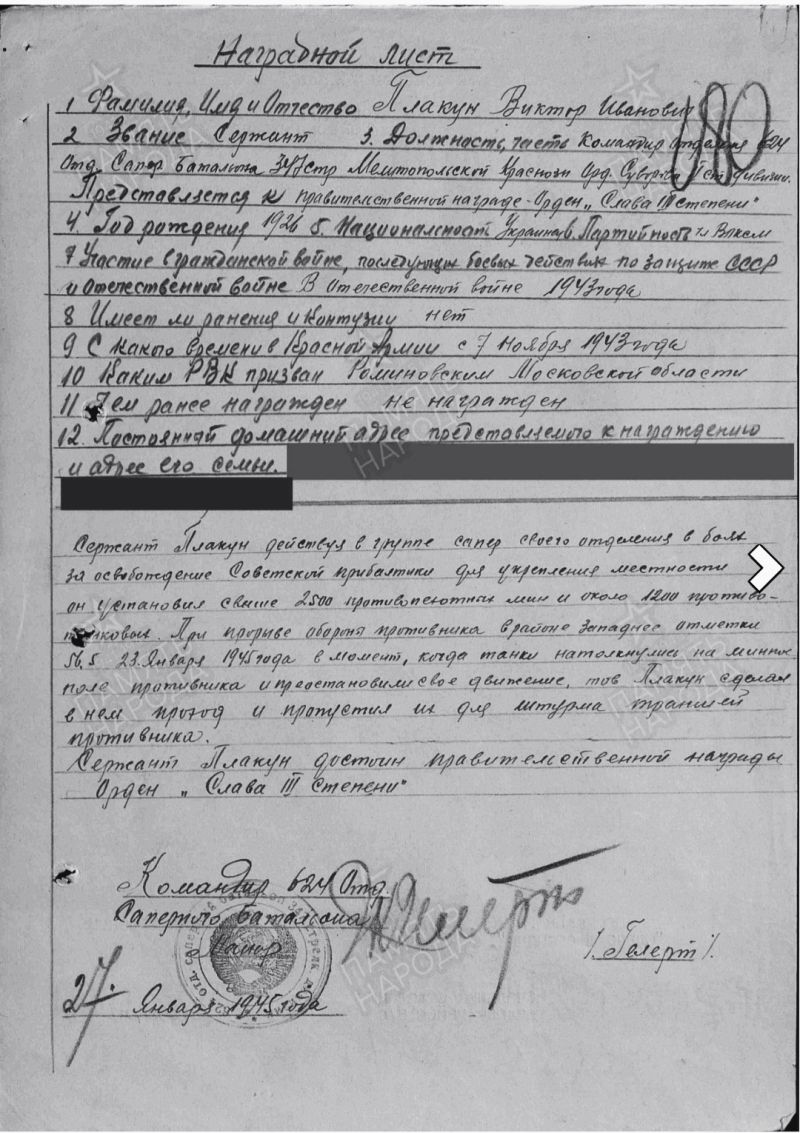 Наградной лист
180
1 Фамилия, Имя и Отчество Плакун Виктор Иванович
2 Звание Сержант 3. Должность, часть Командир отделения 624
Отд. Сапер. Баталиона 347 стр Мелитопольской Краснозн Орд. Суворова II ст. дивизии.
Представляется к правительственной награде - Орден „Слава III степени"
4. Год рождения 1926 5. Националност Украинец 6. Партийность чл Влксм
7 Участие в гражданской войне, последующих боевых действиях по защите СССР
и отечественной войне В отечественной войне 1943 года
8 Имеет ли ранения и контузии нет
9 С какого времени в Красной Армии с 7 ноября 1943 года
10 Каким РВК призван Роминовским Московской области
11 Чем ранее награжден не награжден
12. Постоянный домашний адрес представляемого к награждению
и адрес его семьи.
Сержант Плакун действуя в группе сапер своего отделения в боях
за освобождение Советской прибалтики для укрепления местности
он установил свыше 2500 противопехотных мин и около 1200 противо-
танковых. При прорыве обороны противника в районе западнее отметки
56,5 23. Января 1945 года в момент, когда танки натолкнулись на минное
поле противника и преостановили свое движение, тов Плакун сделал
в нем проход и пропустил их для штурма траншей
противника.
Сержант Плакун достоин правительственной награды
Орден „Слава III степени"
Командир 624 Отд.
Саперного баталиона
Майор /. Гелерт /.
27. Января 1945 года
ПАМЯТЬ НАРОДА